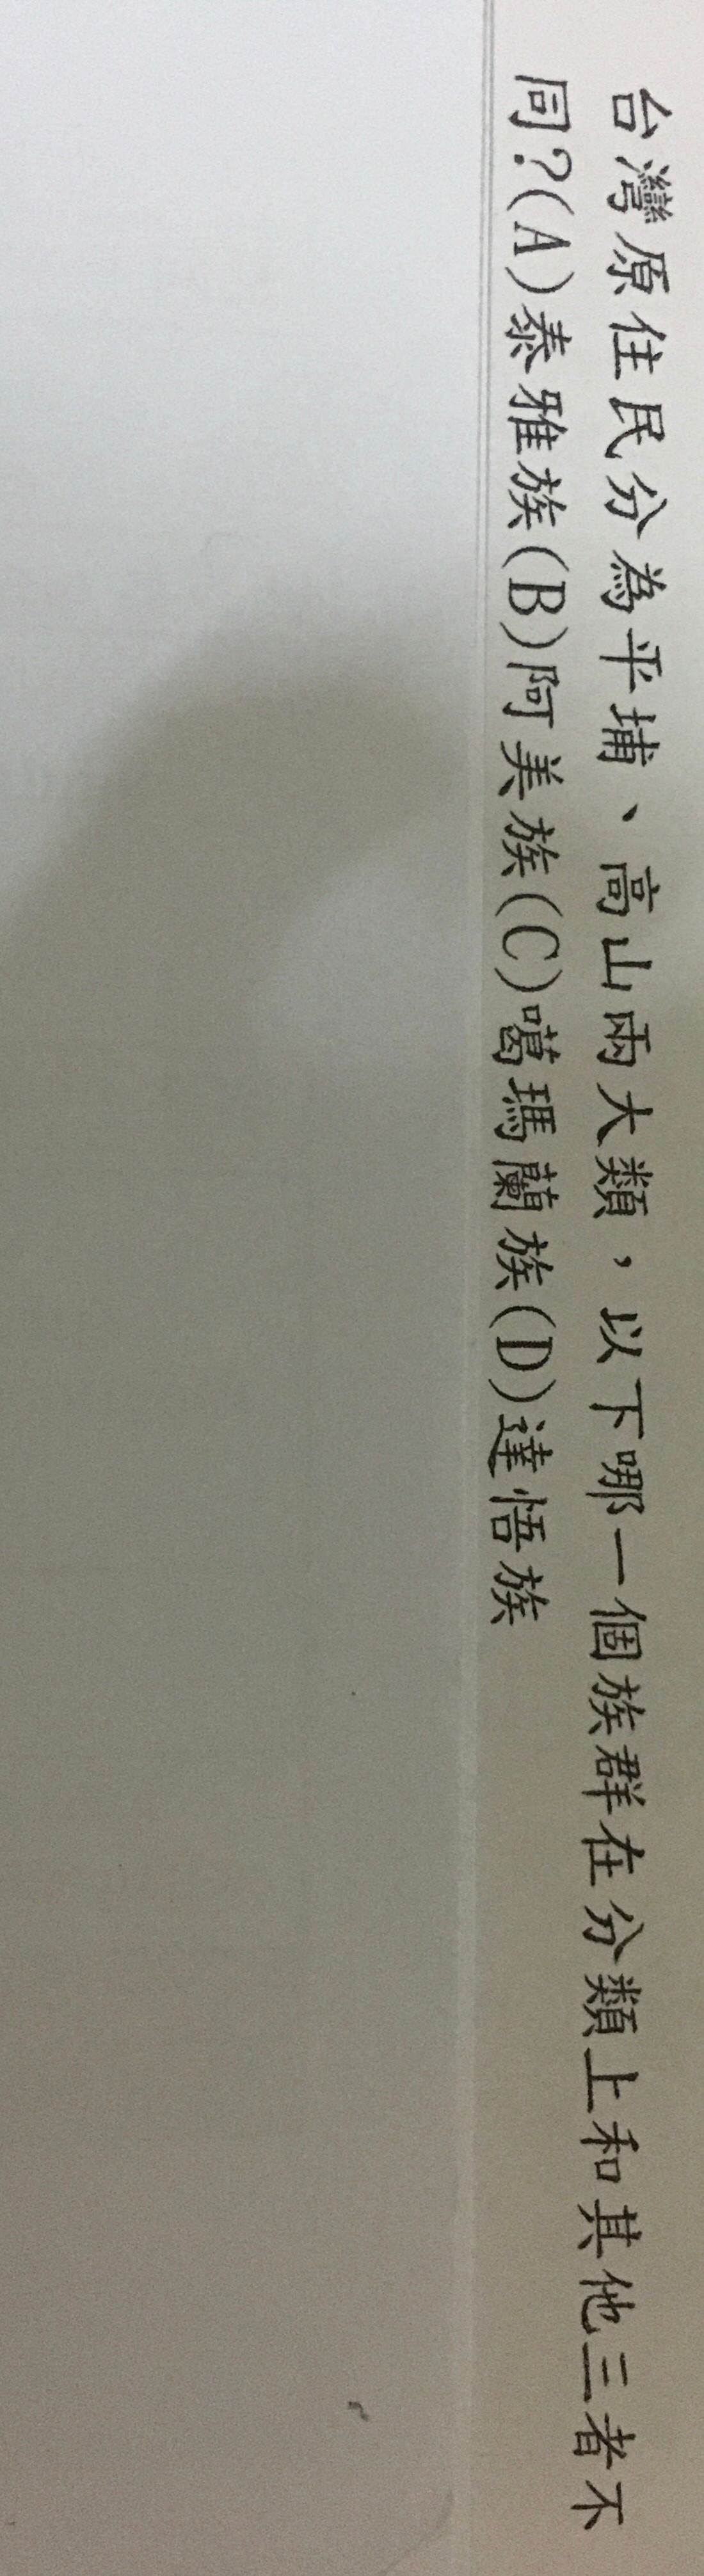 台灣原住民分為平埔、高山兩大類，以下哪一個族群在分類上和其他三者不
同?(A)泰雅族(B)阿美族(C)噶瑪蘭族(D)達悟族